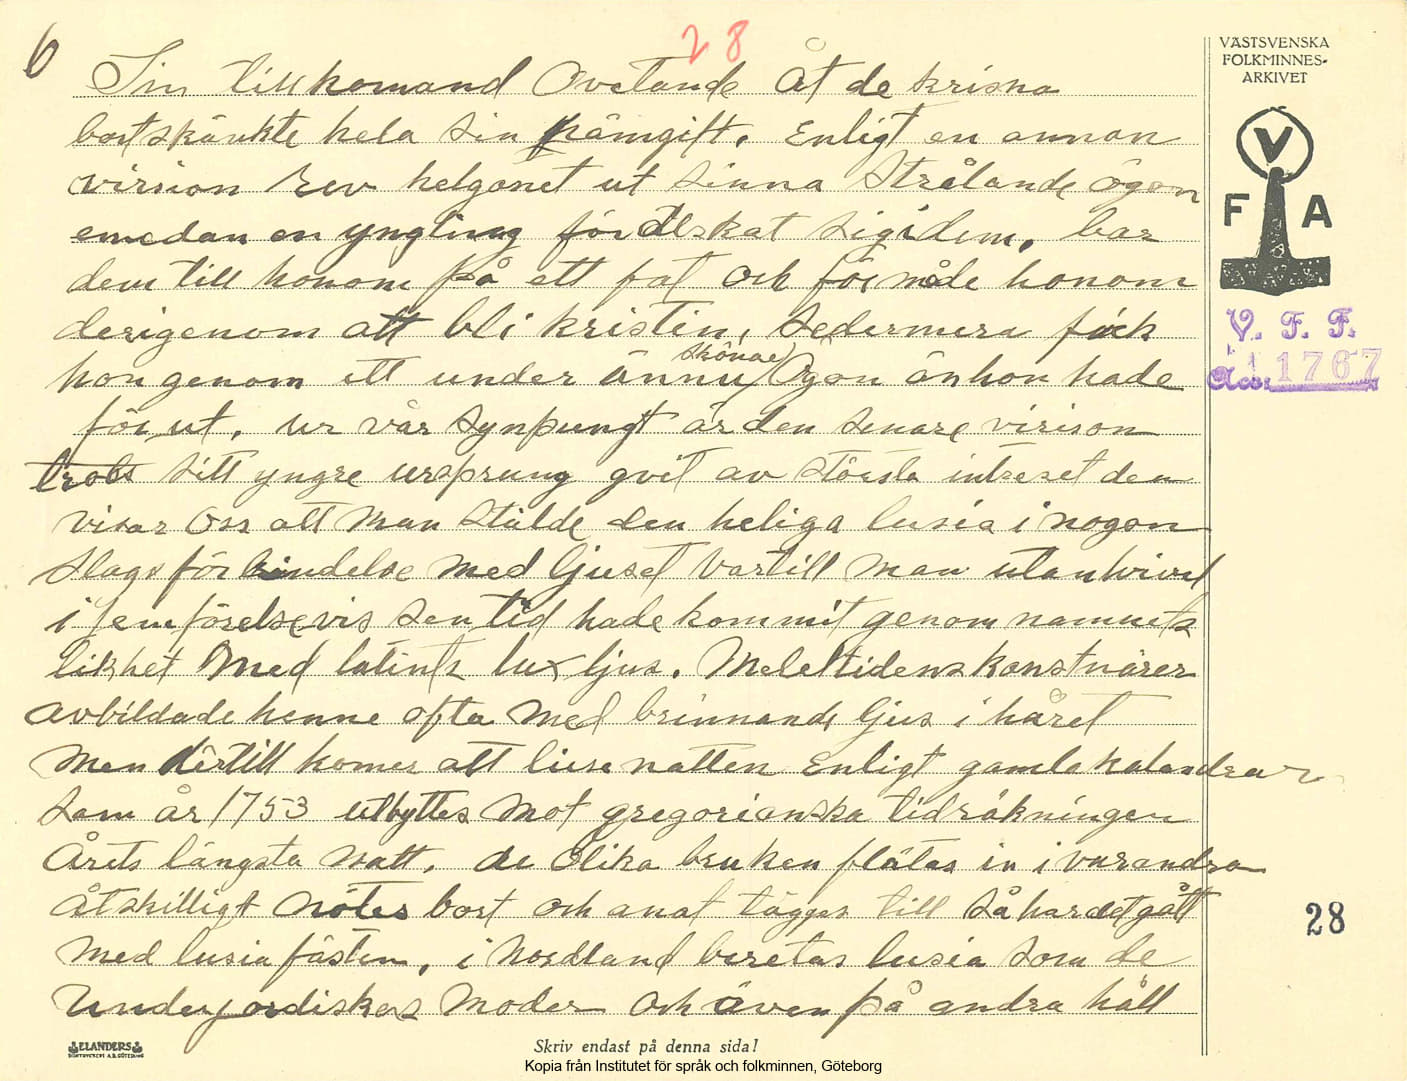 6
28
VÄSTSVENSKA
FOLKMINNES-
ARKIVET
V
F A
V. F. F.
Acc. 1767
Sin tillkomand Ovetande åt de krisna
bortskänkte hela sin hämgift. Enligt en annan
virsion rev helgonet ut sinna strålande ögon
emedan en yngling förälskat sig i dem, bar
dem till honom på ett fat och förmåde honom
derigenom att bli kristen, sedermera fick
hon genom ett under ännu skönae ögon än hon hade
förut, ur vår synpungt är den senare virison
trots sitt yngre ursprung gvit av största intreset den
visar oss att man stälde den heliga lusia i nogon
slags förbindelse med ljuset vartill man utan tvivel
i jemförelsevis sen tid hade kommit genom namnets
likhet med latinets lux ljus. Meleltidens konstnärer
avbildade henne ofta med brinnande ljus i håret
men dertill komer att lusenatten enligt gamla kalandrar
som år 1753 utbyttes mot gregorianska tidräkningen
Årets längsta natt. de olika bruken flätas in i varandra
åtskilligt nötes bort och anat tägges till så har det gått
med lusia fästen, i Nordland beretas lusia som de
underjordiskas moder och även på andra håll
28
ELANDERS
Skriv endast på denna sida!
Kopia från Institutet för språk och folkminnen, Göteborg